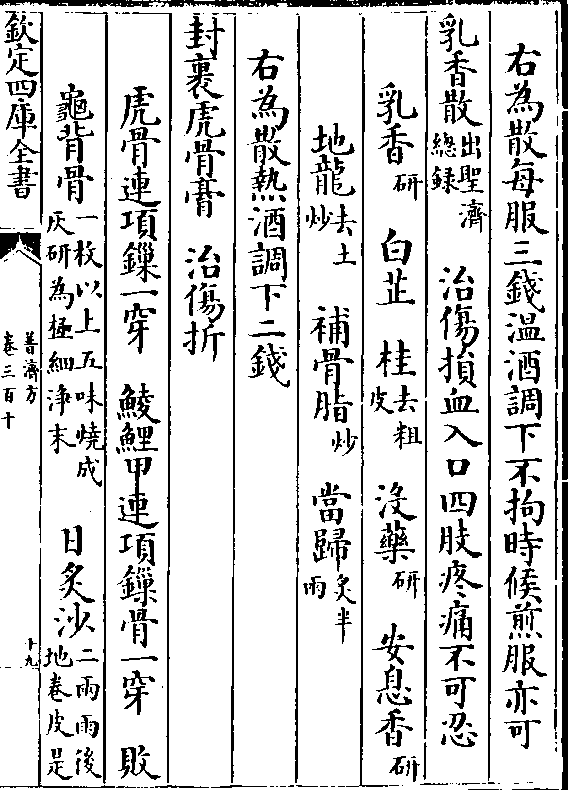 右為散每服三錢溫酒調下不拘時候煎服亦可
乳香散出聖濟總録 治傷損血入口四肢疼痛不可忍
乳香研 白芷 桂去粗皮 沒藥研 安息香研
地龍去土炒 補骨脂炒 當歸炙半兩
右為散熱酒調下二錢
封裹虎骨膏 治傷折
虎骨連項鏁一穿 鯪鯉甲連項鏁骨一穿 敗
龜背骨一枚以上五味燒成灰研為極細淨末 日炙沙二兩雨後地卷皮是
欽定四庫全書
普濟方
卷三百十
十九